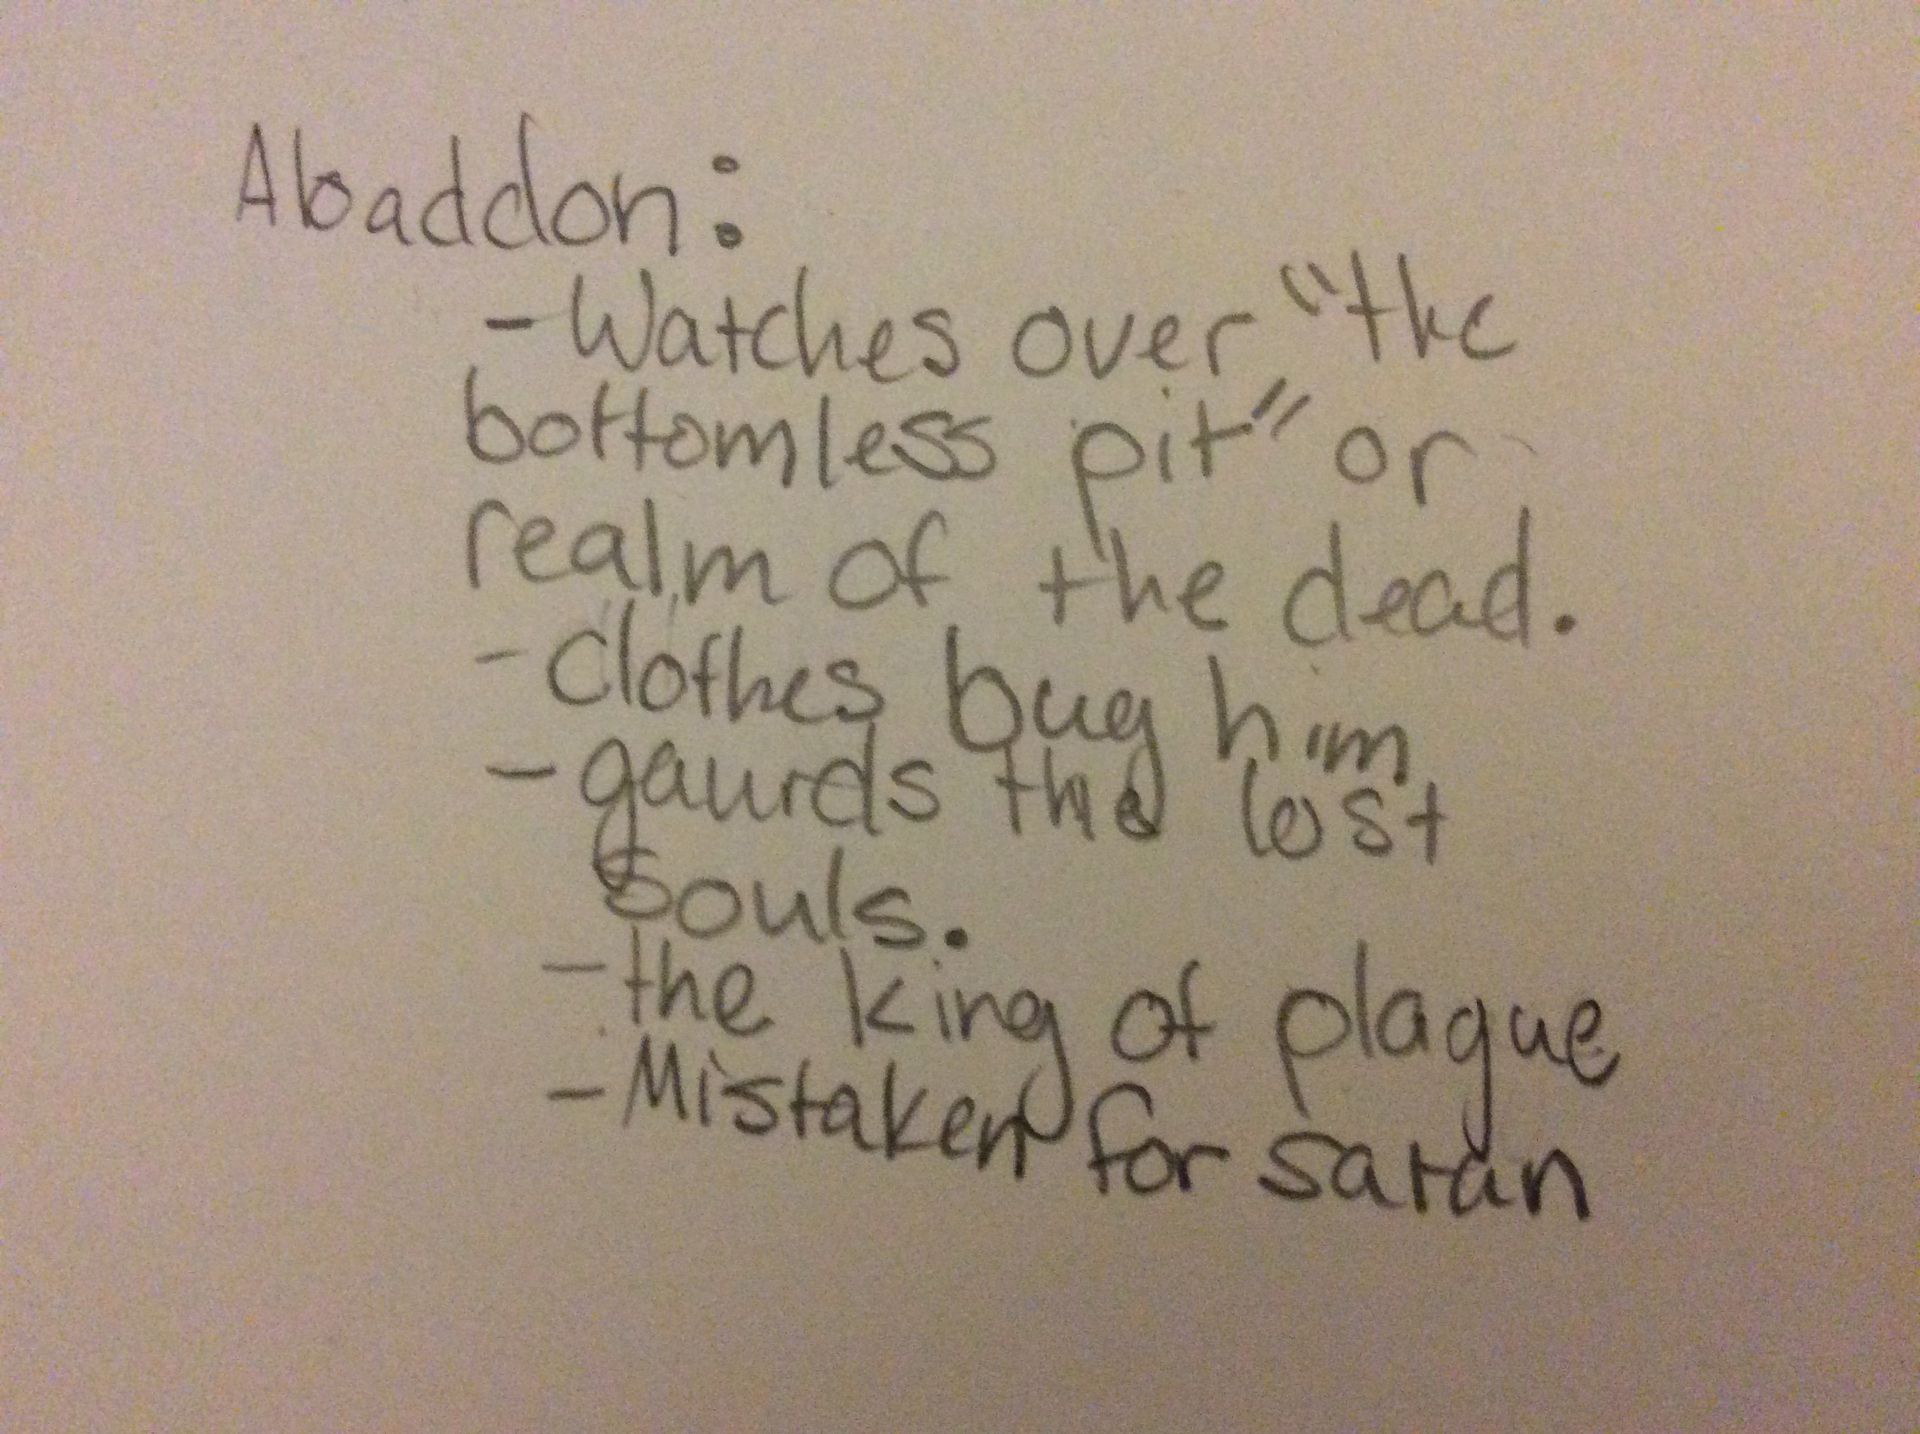 Abaddon:
- Watches over "the
bottomless pit" or
realm of the dead.
- Clothes bug him
- gaurds the lost
souls.
- the king of plague
- Mistaken for satan